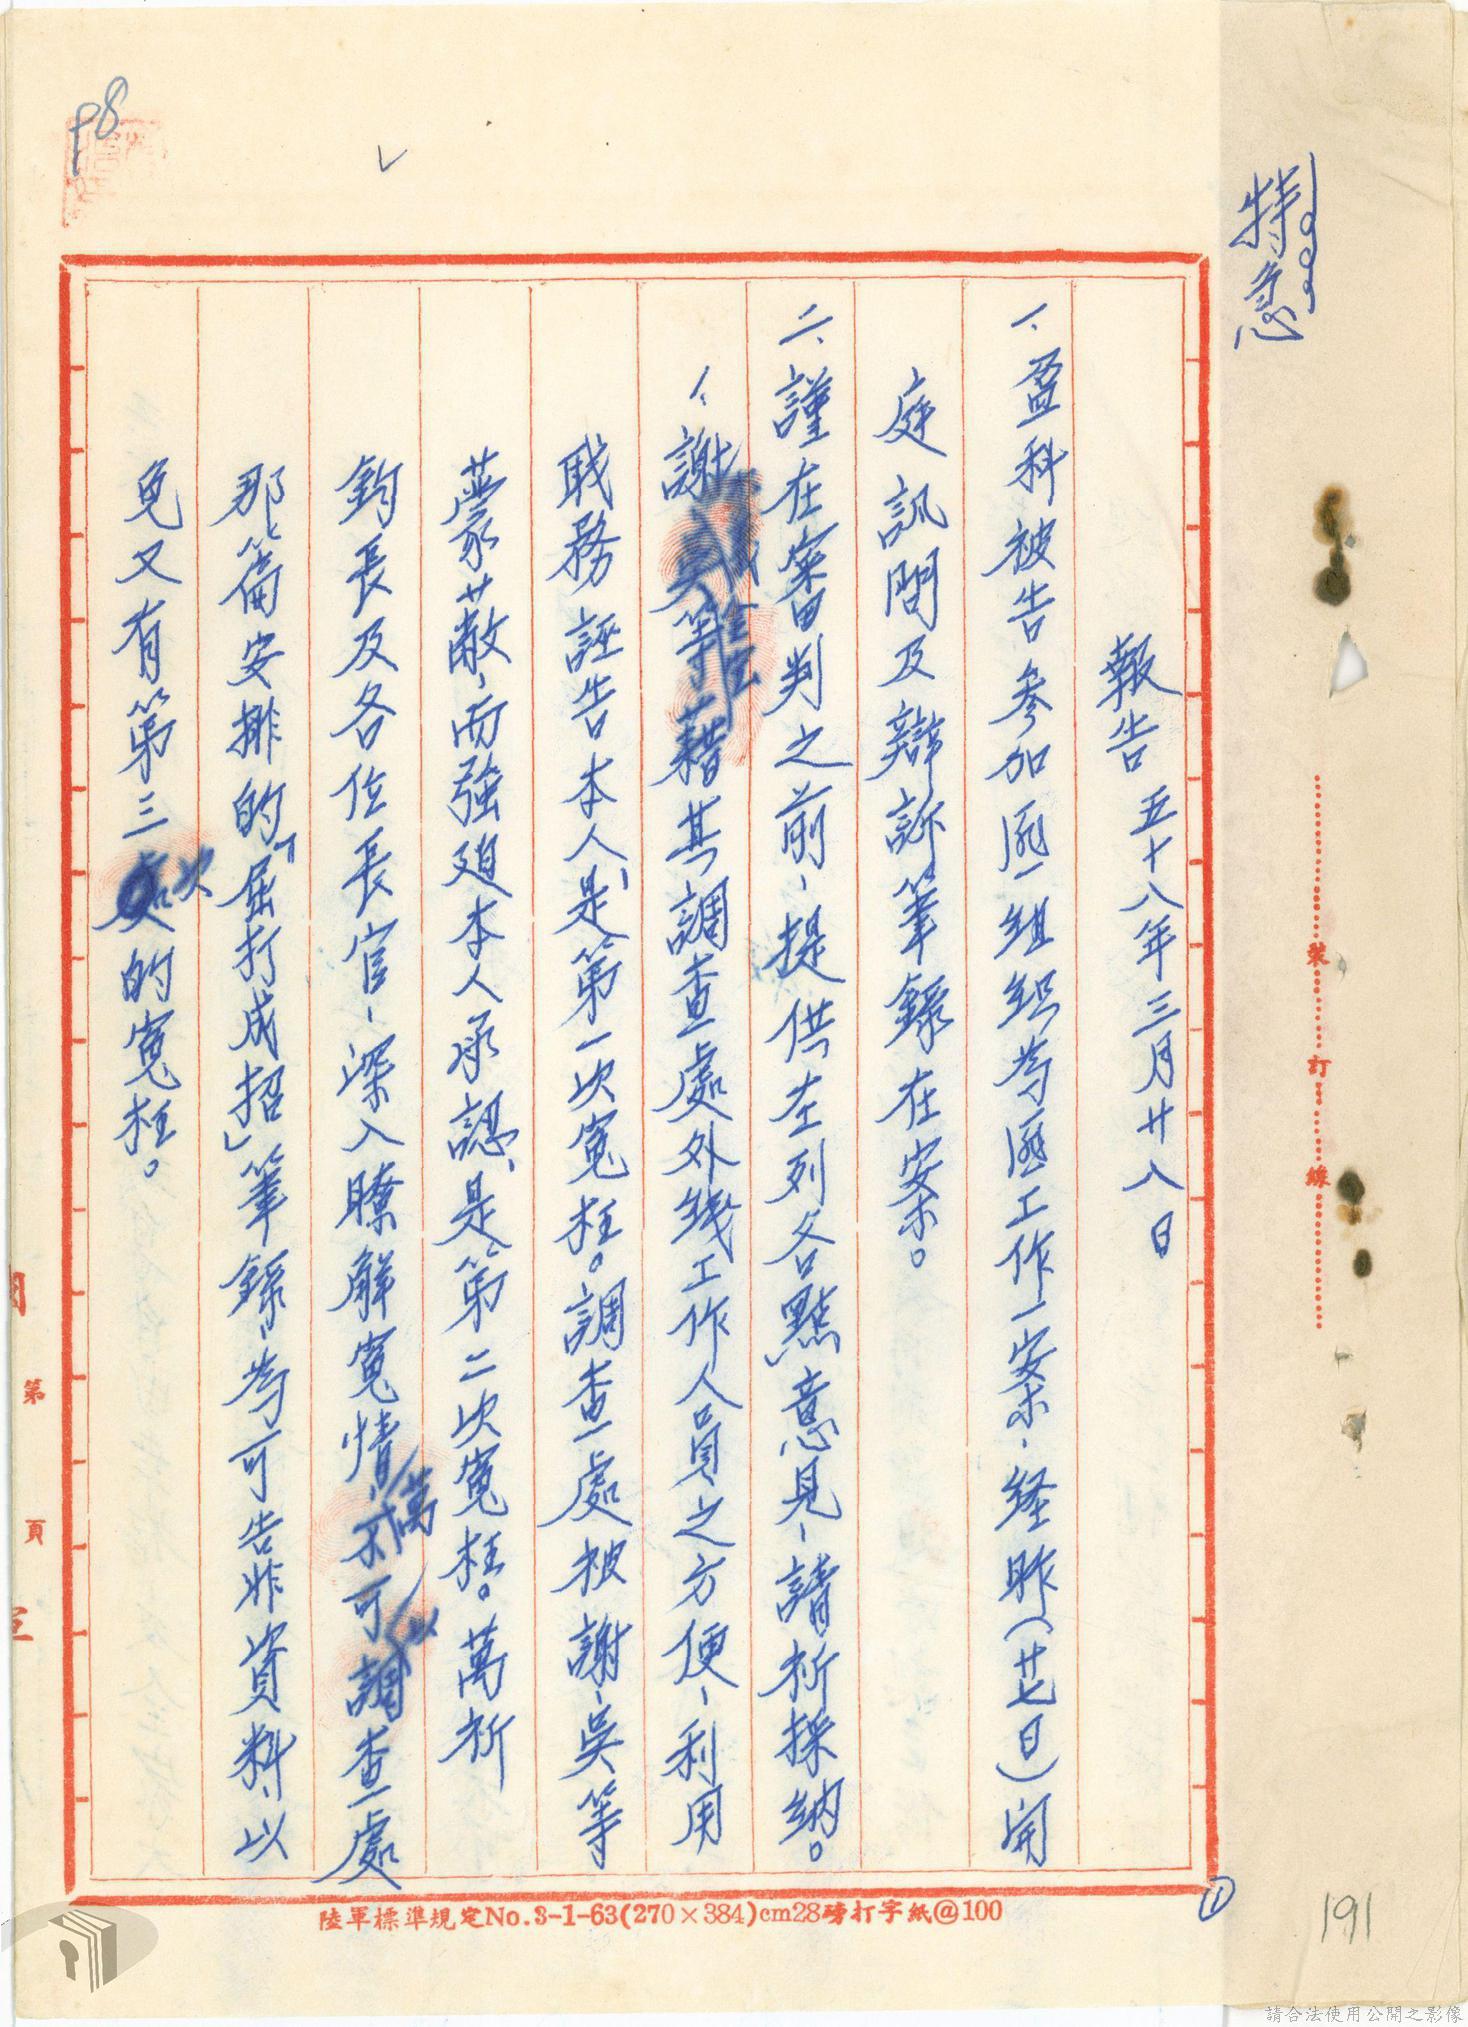 特急
報告 五十八年三月廿八日
一、盈科被告參加匪組織為匪工作一案、経昨(廿七日)開
庭訊問及辯訴筆錄在案。
二、謹在審判之前、提供左列各點意見、請祈採納。
1、謝 等藉其調查處外綫工作人員之方便、利用
職務誣告本人、是第一次冤枉。調查處被謝、吳等
蒙蔽、而強迫本人承認、是第二次冤枉。萬祈
鈞長及各位長官、深入瞭解冤情、萬不可以調查處
那篇安排的「屈打成招」筆錄、為可告非資料、以
免又有第三次的冤枉。
P8
①
191
裝訂線
第 頁
陸軍標準規定No.3-1-63(270×384)cm28磅打字紙@100
請合法使用公開之影像